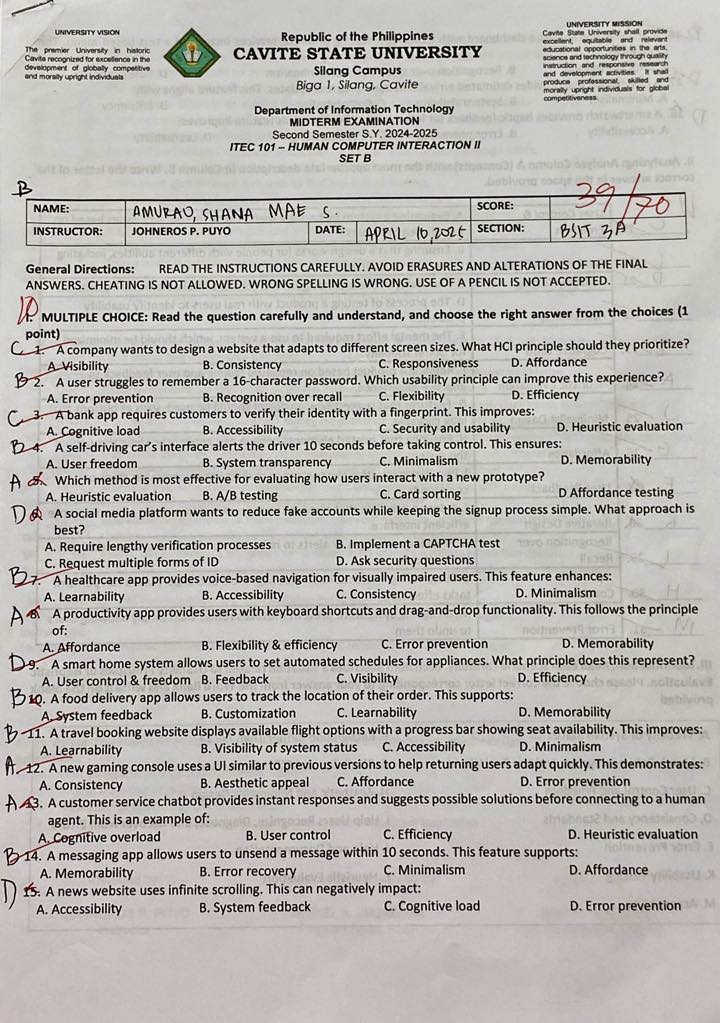 UNIVERSITY VISION
The premier University in historic
Cavite recognized for excellence in the
development of globally competitive
and morally upright individuals
Republic of the Philippines
CAVITE STATE UNIVERSITY
Silang Campus
Biga 1, Silang, Cavite
UNIVERSITY MISSION
Cavite State University shall provide
excellent, equitable and relevant
educational opportunities in the arts,
science and technology through quality
instruction and responsive research
and development activities. It shall
produce professional, skilled and
morally upright individuals for global
competitiveness.
Department of Information Technology
MIDTERM EXAMINATION
Second Semester S.Y. 2024-2025
ITEC 101 – HUMAN COMPUTER INTERACTION II
SET B
B
NAME: AMURAO, SHANA MAE S. SCORE: 39/70
INSTRUCTOR: JOHNEROS P. PUYO DATE: APRIL 10, 2025 SECTION: BSIT 3A
General Directions: READ THE INSTRUCTIONS CAREFULLY. AVOID ERASURES AND ALTERATIONS OF THE FINAL
ANSWERS. CHEATING IS NOT ALLOWED. WRONG SPELLING IS WRONG. USE OF A PENCIL IS NOT ACCEPTED.
I. MULTIPLE CHOICE: Read the question carefully and understand, and choose the right answer from the choices (1
point)
C 1. A company wants to design a website that adapts to different screen sizes. What HCI principle should they prioritize?
A. Visibility B. Consistency C. Responsiveness D. Affordance
B 2. A user struggles to remember a 16-character password. Which usability principle can improve this experience?
A. Error prevention B. Recognition over recall C. Flexibility D. Efficiency
C 3. A bank app requires customers to verify their identity with a fingerprint. This improves:
A. Cognitive load B. Accessibility C. Security and usability D. Heuristic evaluation
B 4. A self-driving car's interface alerts the driver 10 seconds before taking control. This ensures:
A. User freedom B. System transparency C. Minimalism D. Memorability
A 5. Which method is most effective for evaluating how users interact with a new prototype?
A. Heuristic evaluation B. A/B testing C. Card sorting D Affordance testing
D 6. A social media platform wants to reduce fake accounts while keeping the signup process simple. What approach is
best?
A. Require lengthy verification processes B. Implement a CAPTCHA test
C. Request multiple forms of ID D. Ask security questions
B 7. A healthcare app provides voice-based navigation for visually impaired users. This feature enhances:
A. Learnability B. Accessibility C. Consistency D. Minimalism
A 8. A productivity app provides users with keyboard shortcuts and drag-and-drop functionality. This follows the principle
of:
A. Affordance B. Flexibility & efficiency C. Error prevention D. Memorability
D 9. A smart home system allows users to set automated schedules for appliances. What principle does this represent?
A. User control & freedom B. Feedback C. Visibility D. Efficiency
B 10. A food delivery app allows users to track the location of their order. This supports:
A. System feedback B. Customization C. Learnability D. Memorability
B 11. A travel booking website displays available flight options with a progress bar showing seat availability. This improves:
A. Learnability B. Visibility of system status C. Accessibility D. Minimalism
A 12. A new gaming console uses a UI similar to previous versions to help returning users adapt quickly. This demonstrates:
A. Consistency B. Aesthetic appeal C. Affordance D. Error prevention
A 13. A customer service chatbot provides instant responses and suggests possible solutions before connecting to a human
agent. This is an example of:
A. Cognitive overload B. User control C. Efficiency D. Heuristic evaluation
B 14. A messaging app allows users to unsend a message within 10 seconds. This feature supports:
A. Memorability B. Error recovery C. Minimalism D. Affordance
D 15. A news website uses infinite scrolling. This can negatively impact:
A. Accessibility B. System feedback C. Cognitive load D. Error prevention